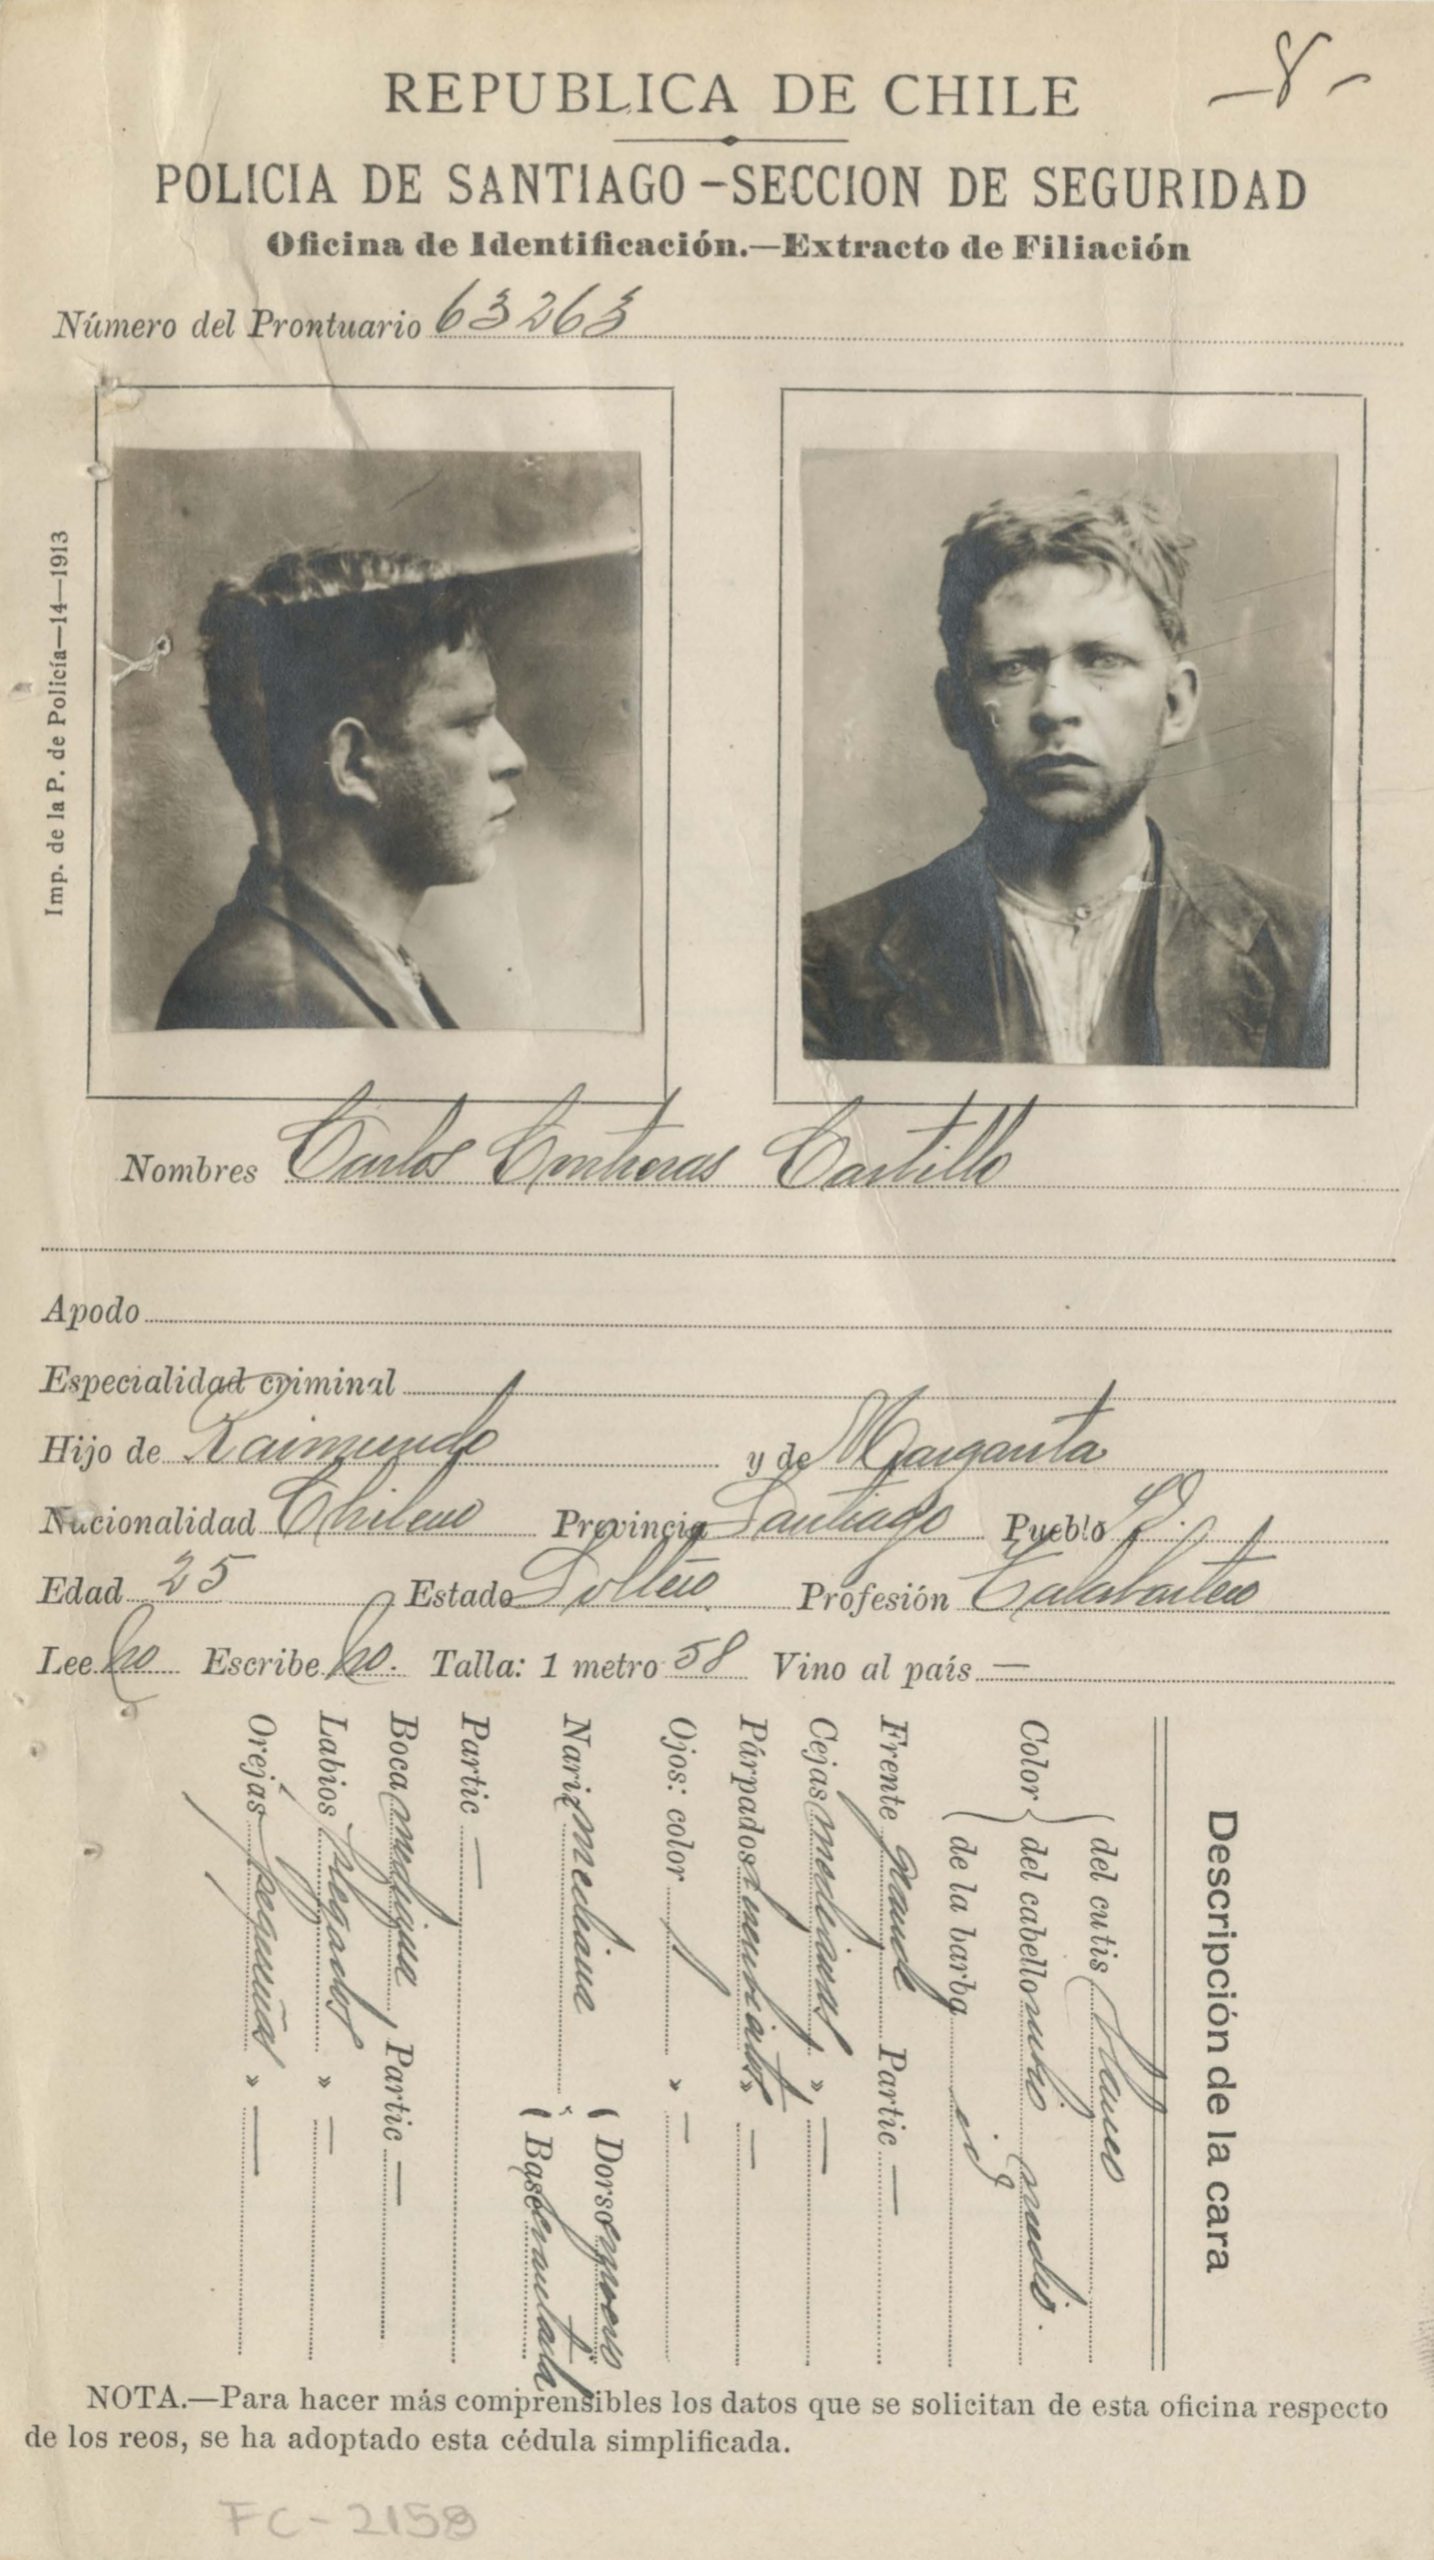 -8-
REPUBLICA DE CHILE
POLICIA DE SANTIAGO - SECCION DE SEGURIDAD
Oficina de Identificación.—Extracto de Filiación
Número del Prontuario 63263
Imp. de la P. de Policía—14—1913
Nombres Carlos Contreras Castillo
Apodo
Especialidad criminal
Hijo de Raimundo y de Margarita
Nacionalidad Chileno Provincia Santiago Pueblo
Edad 25 Estado Soltero Profesión Talabartero
Lee no Escribe no. Talla: 1 metro 58 Vino al país —
Descripción de la cara
Color { del cutis blanco
del cabello rubio medio.
de la barba id
Frente grande Partic —
Cejas medianas » —
Párpados » —
Ojos: color » —
Nariz mediana { Dorso
Base levantada
Partic —
Boca mediana Partic —
Labios plegados » —
Orejas pequeñas » —
NOTA.—Para hacer más comprensibles los datos que se solicitan de esta oficina respecto
de los reos, se ha adoptado esta cédula simplificada.
FC-2158